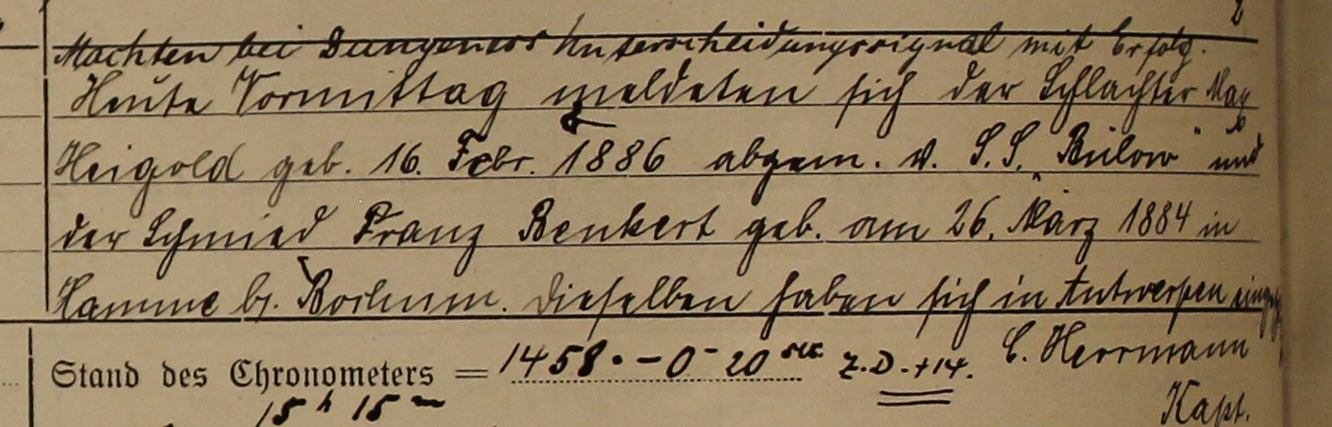 Machten bei Dungeness Unterscheidungssignal mit Erfolg.
Heute Vormittag meldeten sich der Schlachter Max
Heigold geb. 16. Febr. 1886 abgem. v. S.S. „Bülow" und
der Schmied Franz Benkert geb. am 26. März 1884 in
Hamme b. Bochum. Dieselben haben sich in Antwerpen
Stand des Chronometers = 1458 · – 0 – 20 sec. Z.D. +14. C. Herrmann
15 h 15 m Kapt.